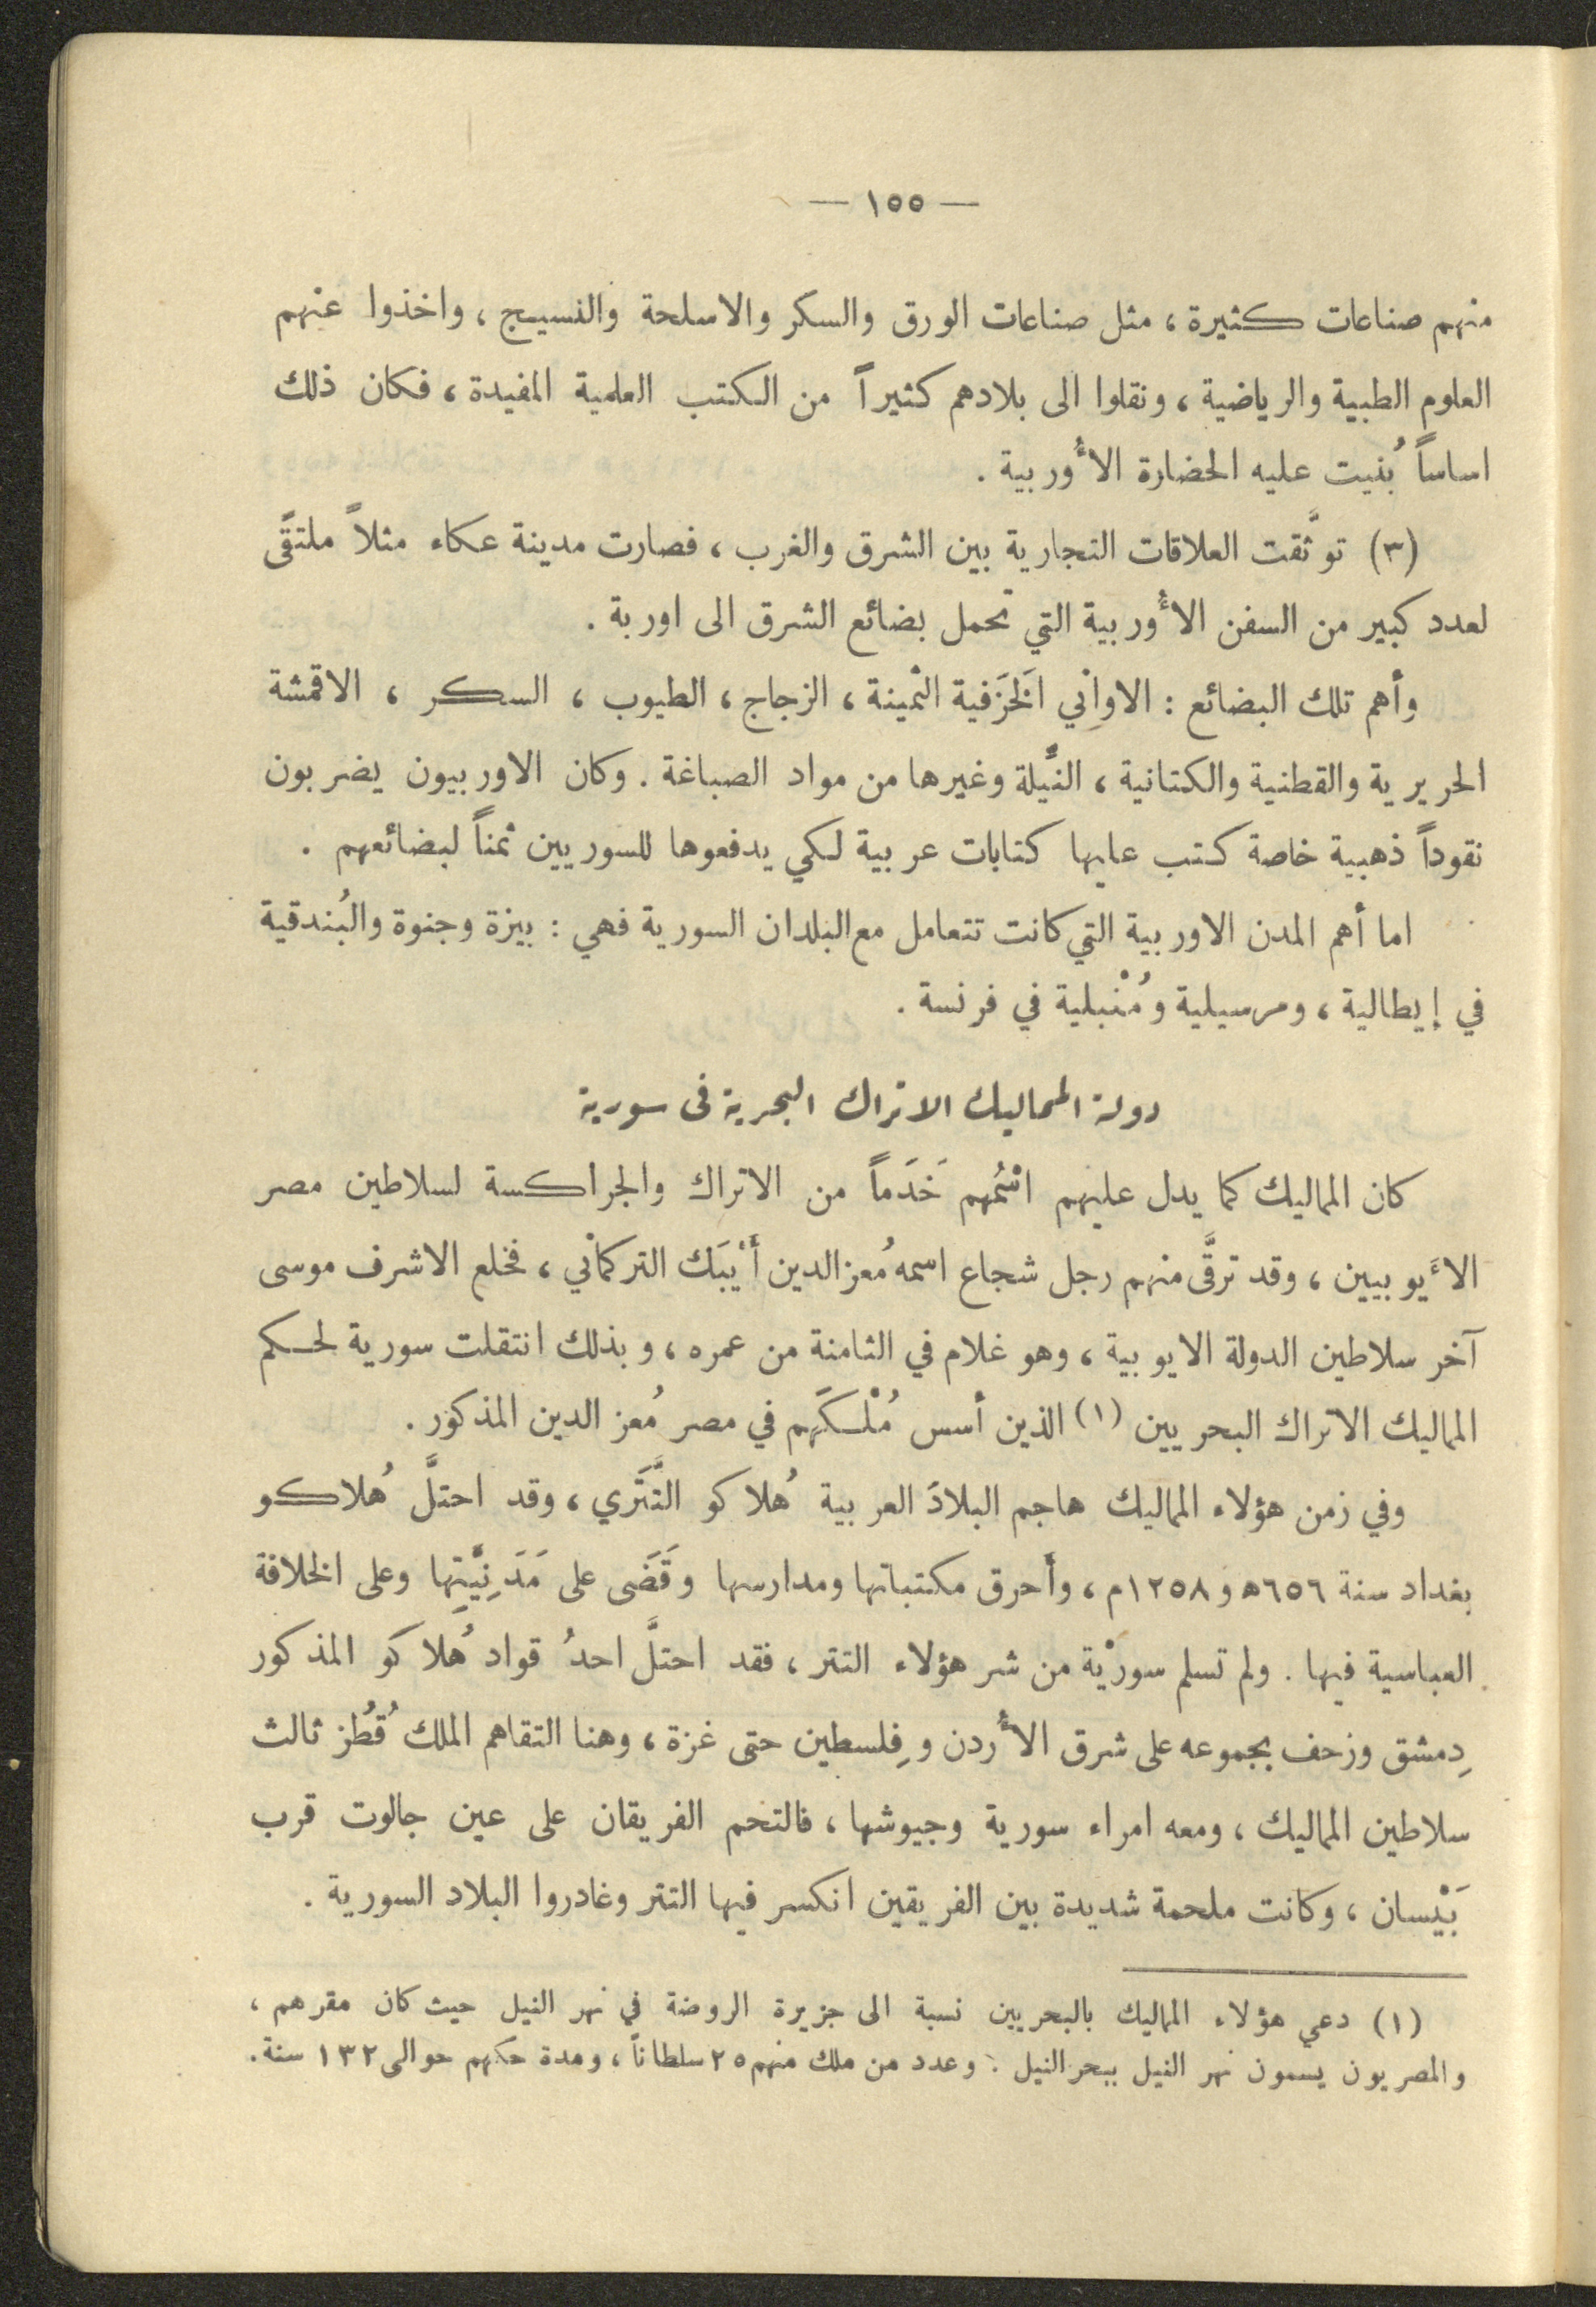 — ١٥٥ —
منهم صناعات كثيرة ، مثل صناعات الورق والسكر والاسلحة والنسيج ، واخذوا عنهم
العلوم الطبية والرياضية ، ونقلوا الى بلادهم كثيراً من الكتب العلمية المفيدة ، فكان ذلك
اساساً بُنيت عليه الحضارة الأُوربية .
(٣) توثَّقت العلاقات التجارية بين الشرق والغرب ، فصارت مدينة عكاء مثلاً ملتقًى
لعدد كبير من السفن الأُوربية التي تحمل بضائع الشرق الى اوربة .
وأهم تلك البضائع : الاواني الَخَزَفية الثمينة ، الزجاج ، الطيوب ، السكر ، الاقمشة
الحريرية والقطنية والكتانية ، النِّيلة وغيرها من مواد الصباغة . وكان الاوربيون يضربون
نقوداً ذهبية خاصة كتب عليها كتابات عربية لكي يدفعوها للسوريين ثمناً لبضائعهم .
اما أهم المدن الاوربية التي كانت تتعامل مع البلدان السورية فهي : بيزة وجنوة والبُندقية
في إيطالية ، ومرسيلية ومُنْبلية في فرنسة .
دولة المماليك الاتراك البحرية فى سورية
كان المماليك كما يدل عليهم اسْمُهم خَدَماً من الاتراك والجراكسة لسلاطين مصر
الأَيوبيين ، وقد ترقَّى منهم رجل شجاع اسمه مُعز الدين أَيْبَك التركماني ، فخلع الاشرف موسى
آخر سلاطين الدولة الايوبية ، وهو غلام في الثامنة من عمره ، وبذلك انتقلت سورية لحكم
المماليك الاتراك البحريين (١) الذين أسس مُلْكَهم في مصر مُعز الدين المذكور .
وفي زمن هؤلاء المماليك هاجم البلادَ العربية هُلاكو التَّتَري ، وقد احتلَّ هُلاكو
بغداد سنة ٦٥٦ھ و ١٢٥٨م ، وأَحرق مكتباتها ومدارسها وقَضَى على مَدَنِيَّتِها وعلى الخلافة
العباسية فيها . ولم تسلم سورْية من شر هؤلاء التتر ، فقد احتلَّ احدُ قواد هُلاكو المذكور
دِمشق وزحف بجموعه على شرق الأُردن وفِلسطين حتى غزة ، وهنا التقاهم الملك قُطُز ثالث
سلاطين المماليك ، ومعه امراء سورية وجيوشها ، فالتحم الفريقان على عين جالوت قرب
بَيْسان ، وكانت ملحمة شديدة بين الفريقين انكسر فيها التتر وغادروا البلاد السورية .
(١) دعي هؤلاء المماليك بالبحريين نسبة الى جزيرة الروضة في نهر النيل حيث كان مقرهم ،
والمصريون يسمون نهر النيل ببحر النيل . وعدد من ملك منهم ٢٥ سلطاناً ، ومدة حكمهم حوالى ١٣٢ سنة .